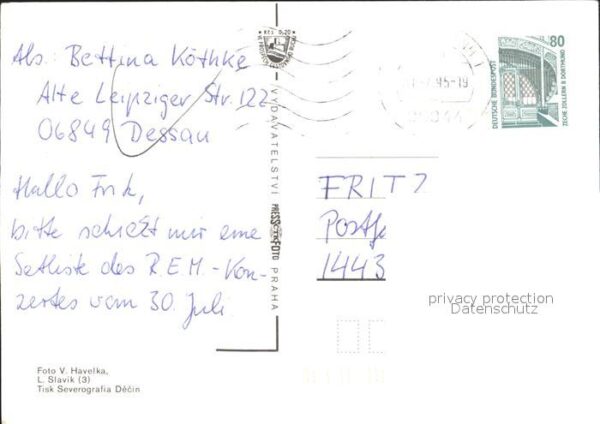 Abs. Bettina Köthke
Alte Leipziger Str. 122
06849 Dessau
Hallo
bitte schickt mir eine
Setliste des R.E.M.-Kon-
zertes vom 30. Juli.
Foto V. Havelka,
L. Slavík (3)
Tisk Severografia Děčín
VYDAVATELSTVÍ PRESSFOTO PRAHA
80
DEUTSCHE BUNDESPOST
ZECHE ZOLLERN II DORTMUND
95-19
FRITZ
Postf.
1443
privacy protection
Datenschutz